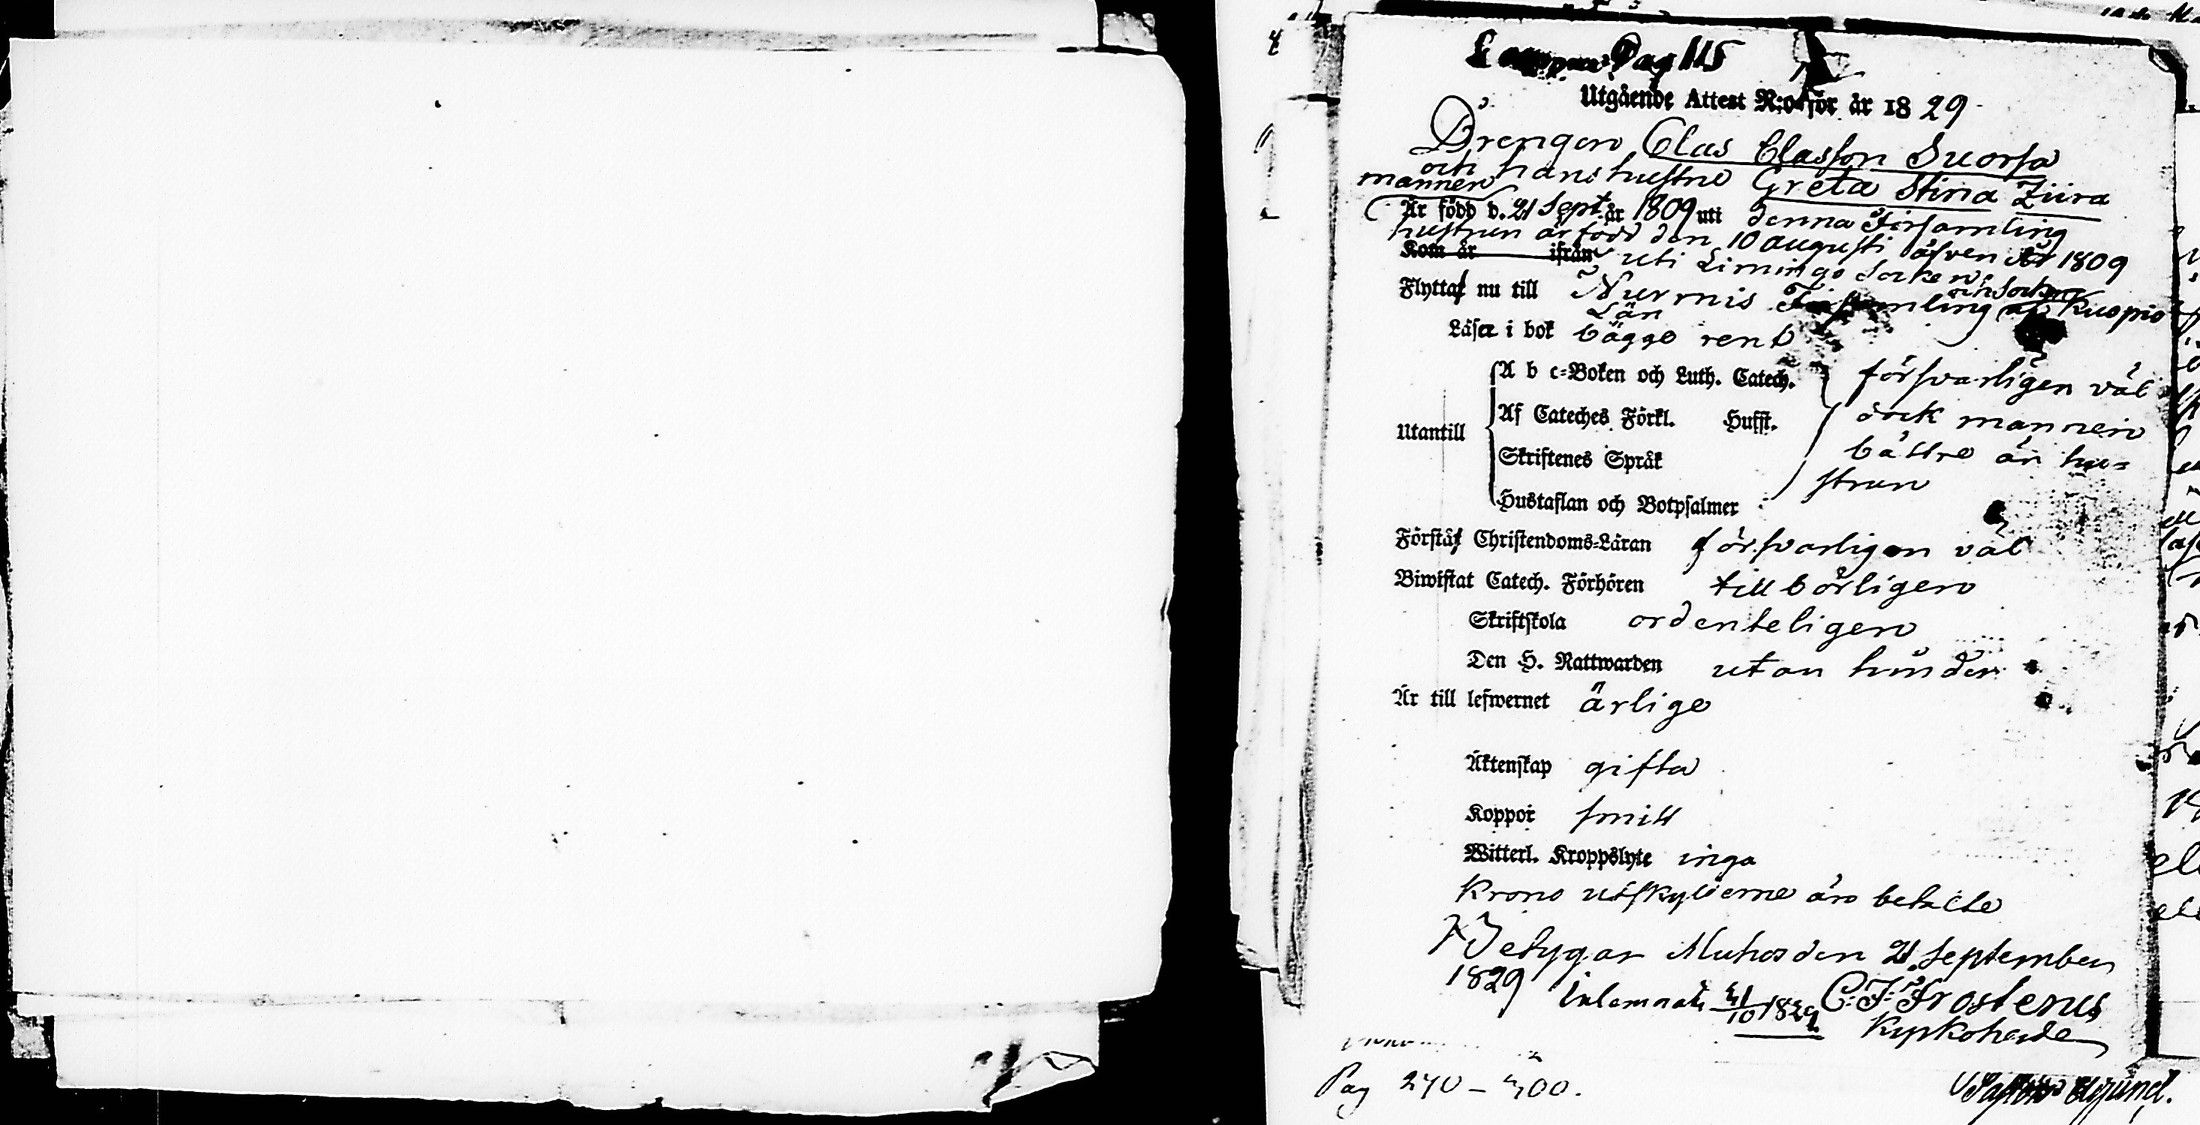 Pag 115
Utgående Attest N:o för år 1829
Drengen Clas Classon Suorsa
och hans hustru Greta Stina Ziira
mannen
Är född d. 21 Sept. år 1809 uti denna Församling
hustrun är född den 10 augusti äfven år 1809
Kom år ifrån uti Limingo Socken
Flytta nu till Nurmis Församling och Socken af Kuopio
Län
Läser i bok bägge rent
A b c-Boken och Luth. Catech. försvarligen väl
Af Cateches Förkl. Husst. dock mannen
Utantill
Skriftenes Språk bättre än hu=
strun
Hustaflan och Botpsalmer
Förstå Christendoms-Läran försvarligen väl
Biwistat Catech. Förhören tillbörligen
Skriftskola ordenteligen
Den H. Nattwarden utan hinder
Är till lefwernet ärlige
Äktenskap gifta
Koppor
Witterl. Kroppslyte inga
Krono utskylderne äro betalte
Betygar Muhos den 21 September
1829
C: F: Frosterus
Kyrkoherde
Pag 240 –